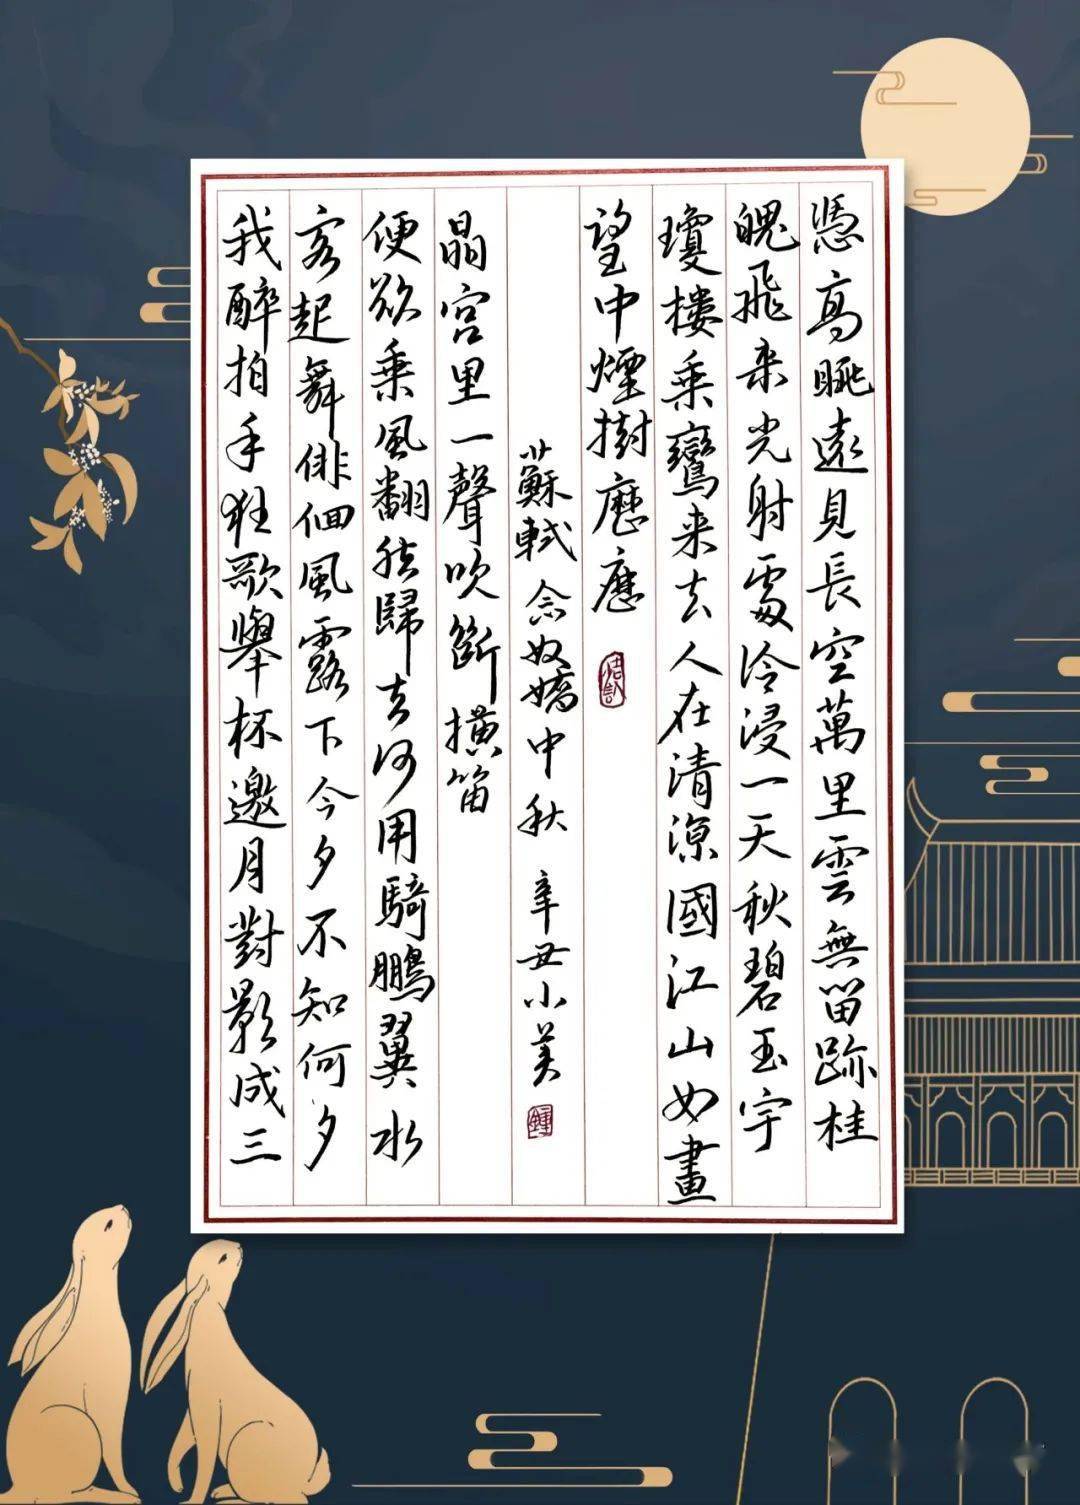 憑高眺遠見長空萬里雲無留跡桂
魄飛来光射處冷浸一天秋碧玉宇
瓊樓乘鸞来去人在清涼國江山如畫
望中煙樹歷歷
我醉拍手狂歌舉杯邀月對影成三
客起舞徘徊風露下今夕不知何夕
便欲乘風翻然歸去何用騎鵬翼水
晶宮里一聲吹斷橫笛
蘇軾念奴嬌中秋 辛丑小美